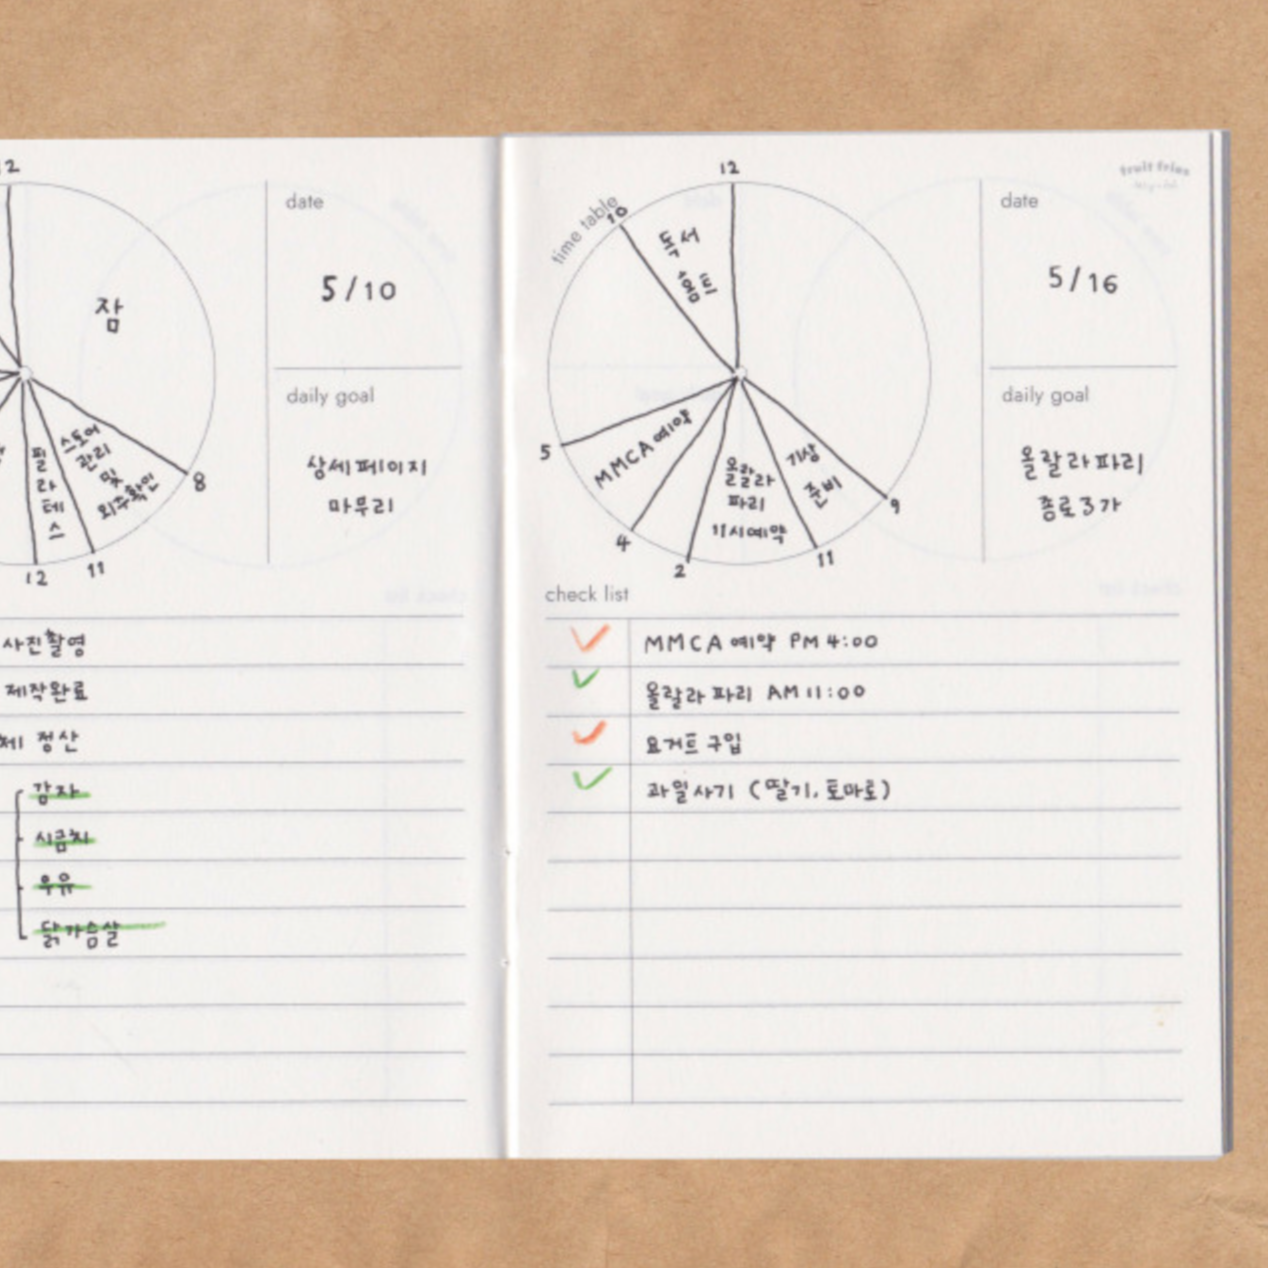 12
잠
스토어
관리
및
외주확인
필
라
테
스
8
11
12
date
5/10
daily goal
상세페이지
마무리
사진촬영
제작완료
정산
감자
시금치
우유
닭가슴살
time table
12
10
독서
5
MMCA 예약
4
올랄라
파리
11시예약
2
기상
준비
11
9
fruit fries
date
5/16
daily goal
올랄라파리
종로3가
check list
MMCA 예약 PM 4:00
올랄라 파리 AM 11:00
요거트 구입
과일사기 (딸기, 토마로)